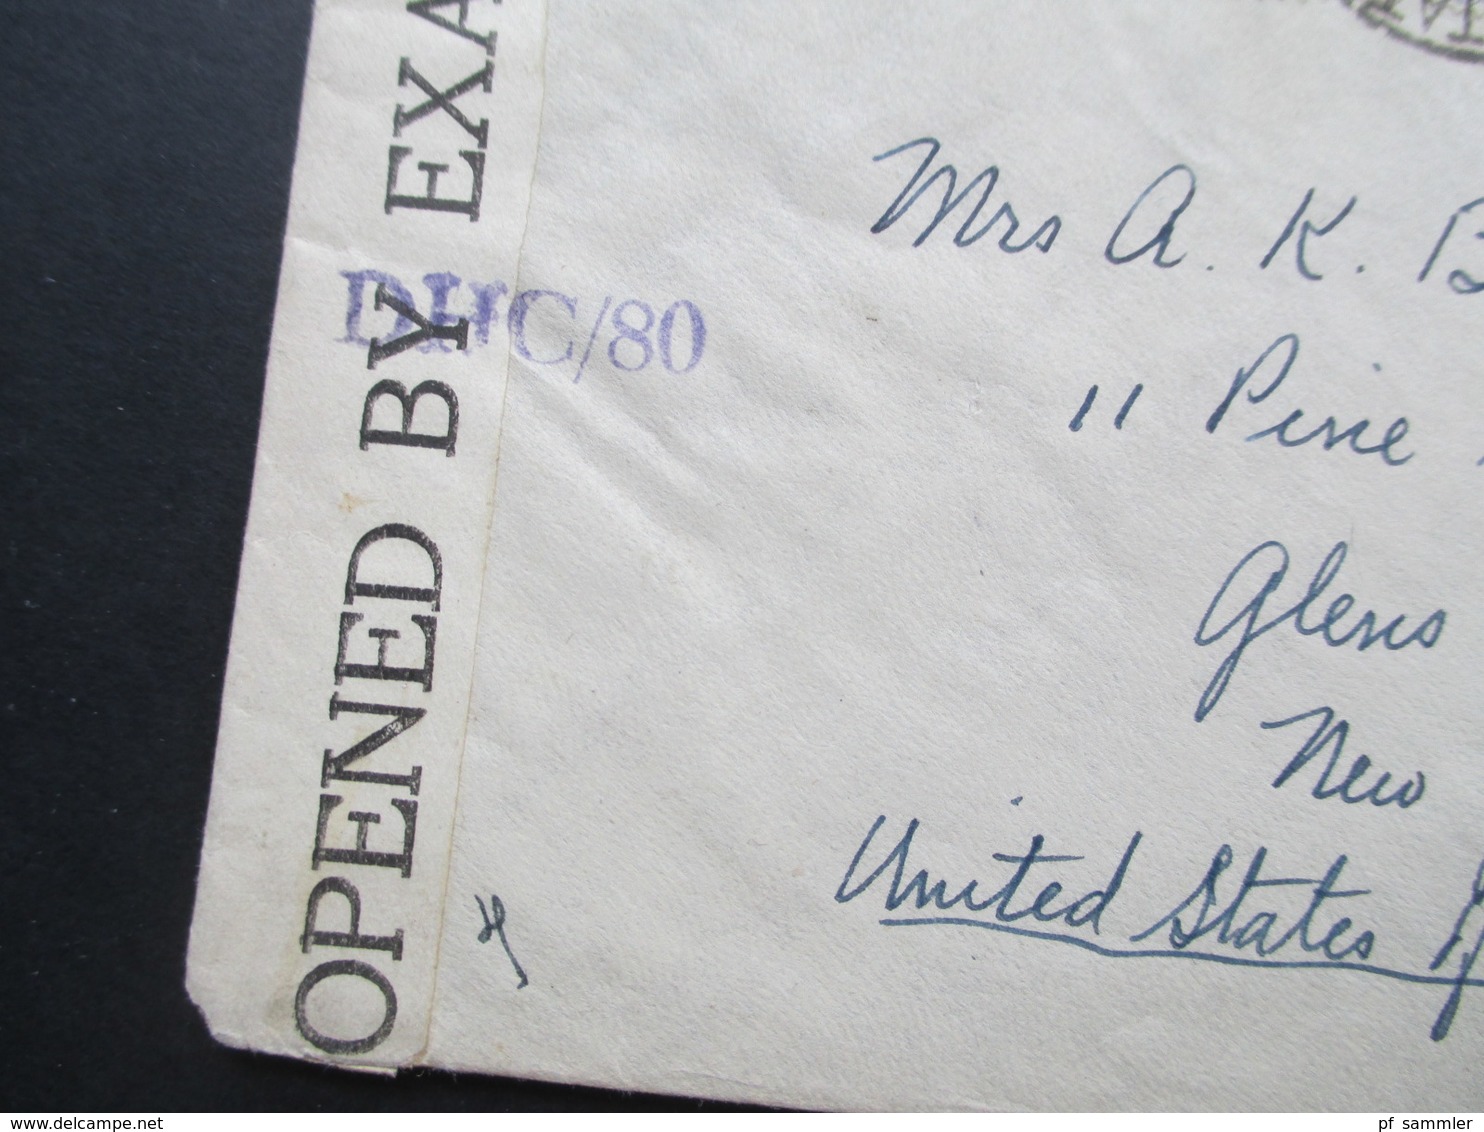 OPENED BY EXA
DHC/80
Mrs A. K. B
11 Pine
Glens
New
United States
www.delcampe.net
pf_sammler